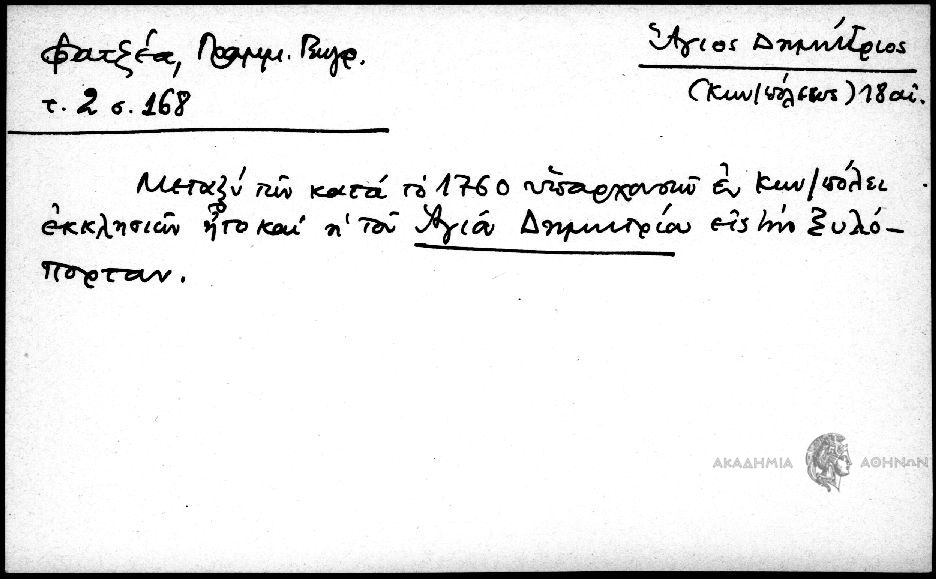 Φατζέα, Γραμμ. Γεωγρ.
τ. 2 σ. 168
Ἅγιος Δημήτριος
(Κων/πόλεως) 18 αἰ.
Μεταξύ τῶν κατά τό 1760 ὑπαρχουσῶν ἐν Κων/πόλει
ἐκκλησιῶν ἦτο καί ἡ τοῦ Ἁγιᾶ Δημητρίου εἰς τήν Ξυλό-
πορταν.
ΑΚΑΔΗΜΙΑ ΑΘΗΝΩΝ